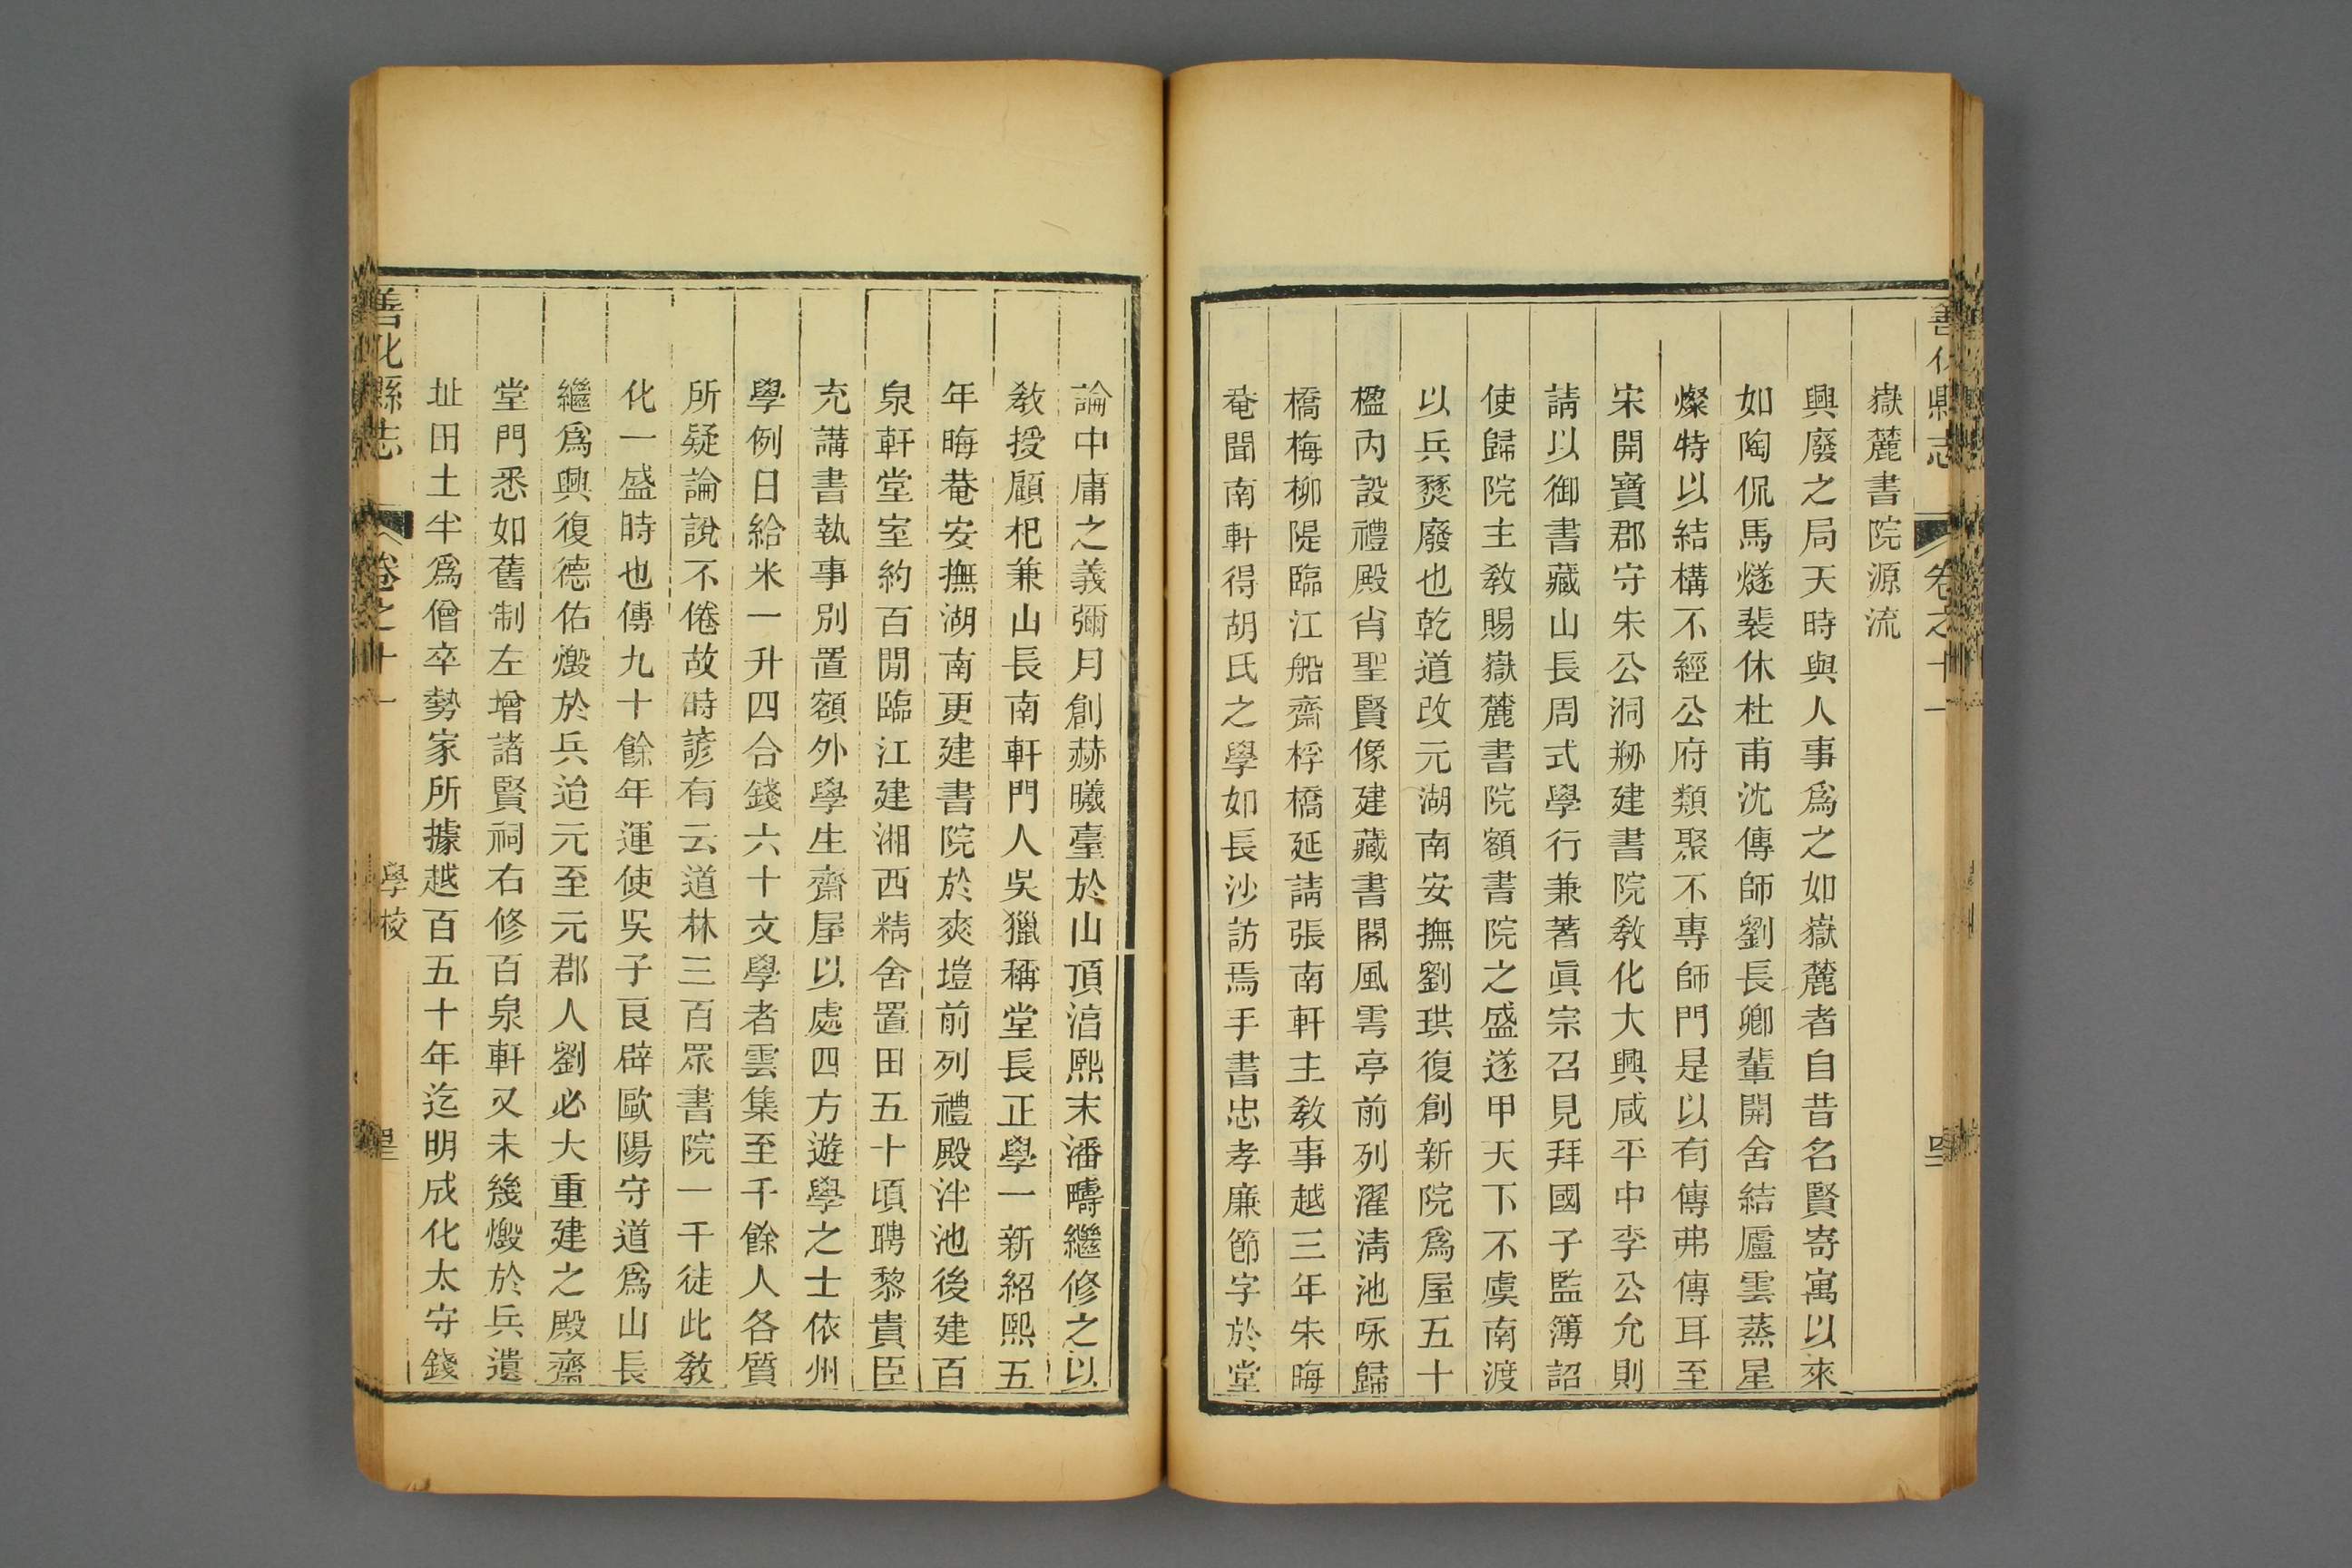 善化縣志 卷之十一
嶽麓書院源流
興廢之局天時與人事爲之如嶽麓者自昔名賢寄寓以來
如陶侃馬燧裴休杜甫沈傳師劉長卿輩開舍結廬雲蒸星
燦特以結構不經公府類聚不專師門是以有傳弗傳耳至
宋開寶郡守朱公洞剏建書院敎化大興咸平中李公允則
請以御書藏山長周式學行兼著眞宗召見拜國子監簿詔
使歸院主敎賜嶽麓書院額書院之盛遂甲天下不虞南渡
以兵燹廢也乾道改元湖南安撫劉珙復創新院爲屋五十
楹內設禮殿肖聖賢像建藏書閣風雩亭前列濯淸池咏歸
橋梅柳隄臨江船齋桴橋延請張南軒主敎事越三年朱晦
菴聞南軒得胡氏之學如長沙訪焉手書忠孝廉節字於堂
論中庸之義彌月創赫曦臺於山頂湻熙末潘疇繼修之以
敎授顧杞兼山長南軒門人吳獵稱堂長正學一新紹熙五
年晦菴安撫湖南更建書院於爽塏前列禮殿泮池後建百
泉軒堂室約百閒臨江建湘西精舍置田五十頃聘黎貴臣
充講書執事別置額外學生齋屋以處四方遊學之士依州
學例日給米一升四合錢六十文學者雲集至千餘人各質
所疑論說不倦故時諺有云道林三百眾書院一千徒此敎
化一盛時也傳九十餘年運使吳子良辟歐陽守道爲山長
繼爲興復德佑燬於兵迨元至元郡人劉必大重建之殿齋
堂門悉如舊制左增諸賢祠右修百泉軒又未幾燬於兵遺
址田土半爲僧卒勢家所據越百五十年迄明成化太守錢
善化縣志 卷之十一 學校